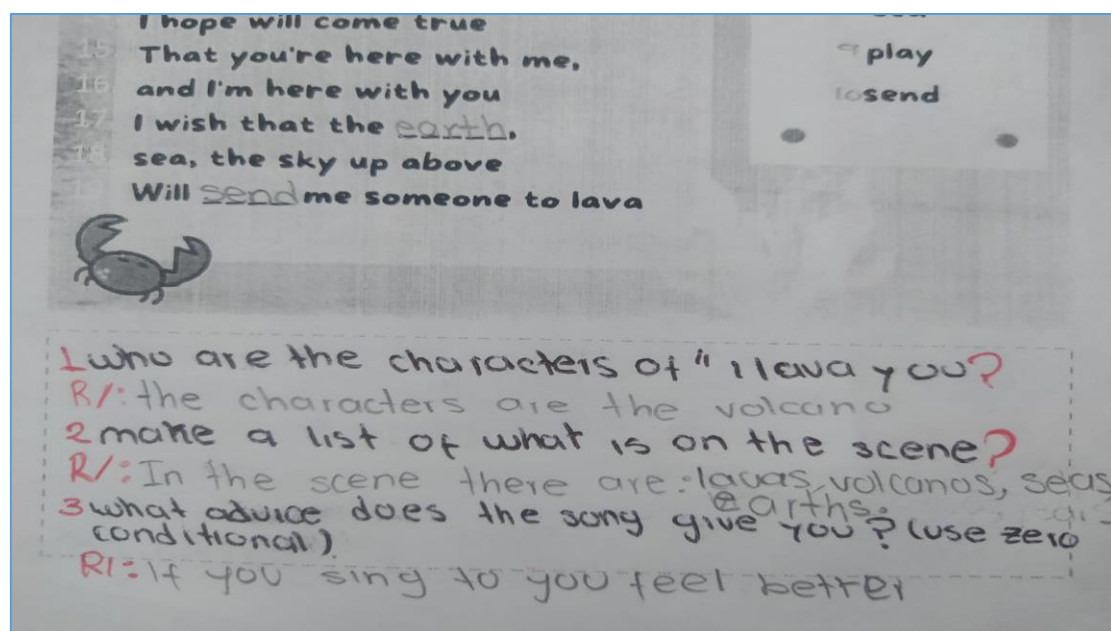 I hope will come true
15 That you're here with me, play
16 and I'm here with you 10 send
17 I wish that the earth,
18 sea, the sky up above
Will send me someone to lava
1 who are the characters of " I lava you?
R/: the characters are the volcano
2 make a list of what is on the scene?
R/: In the scene there are: lavas, volcanos, seas
earths.
3 what advice does the song give you? (use zero
conditional)
R/: If you sing to you feel better